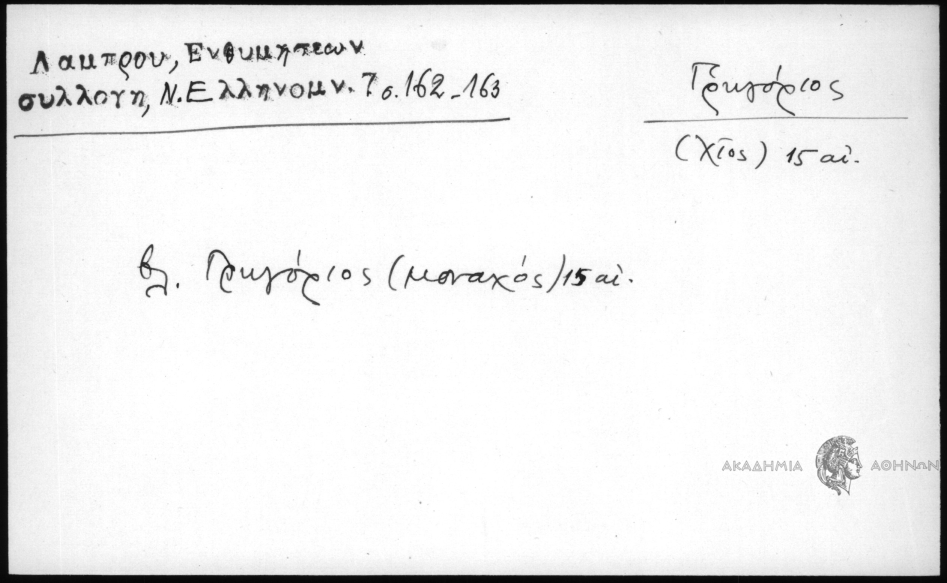 Λαμπρου, Ενθυμησεων
συλλογη, Ν. Ελληνομν. 7 σ. 162-163
Γρηγόριος
(Χῖος) 15 αἰ.
βλ. Γρηγόριος (μοναχός) 15 αἰ.
ΑΚΑΔΗΜΙΑ ΑΘΗΝΩΝ